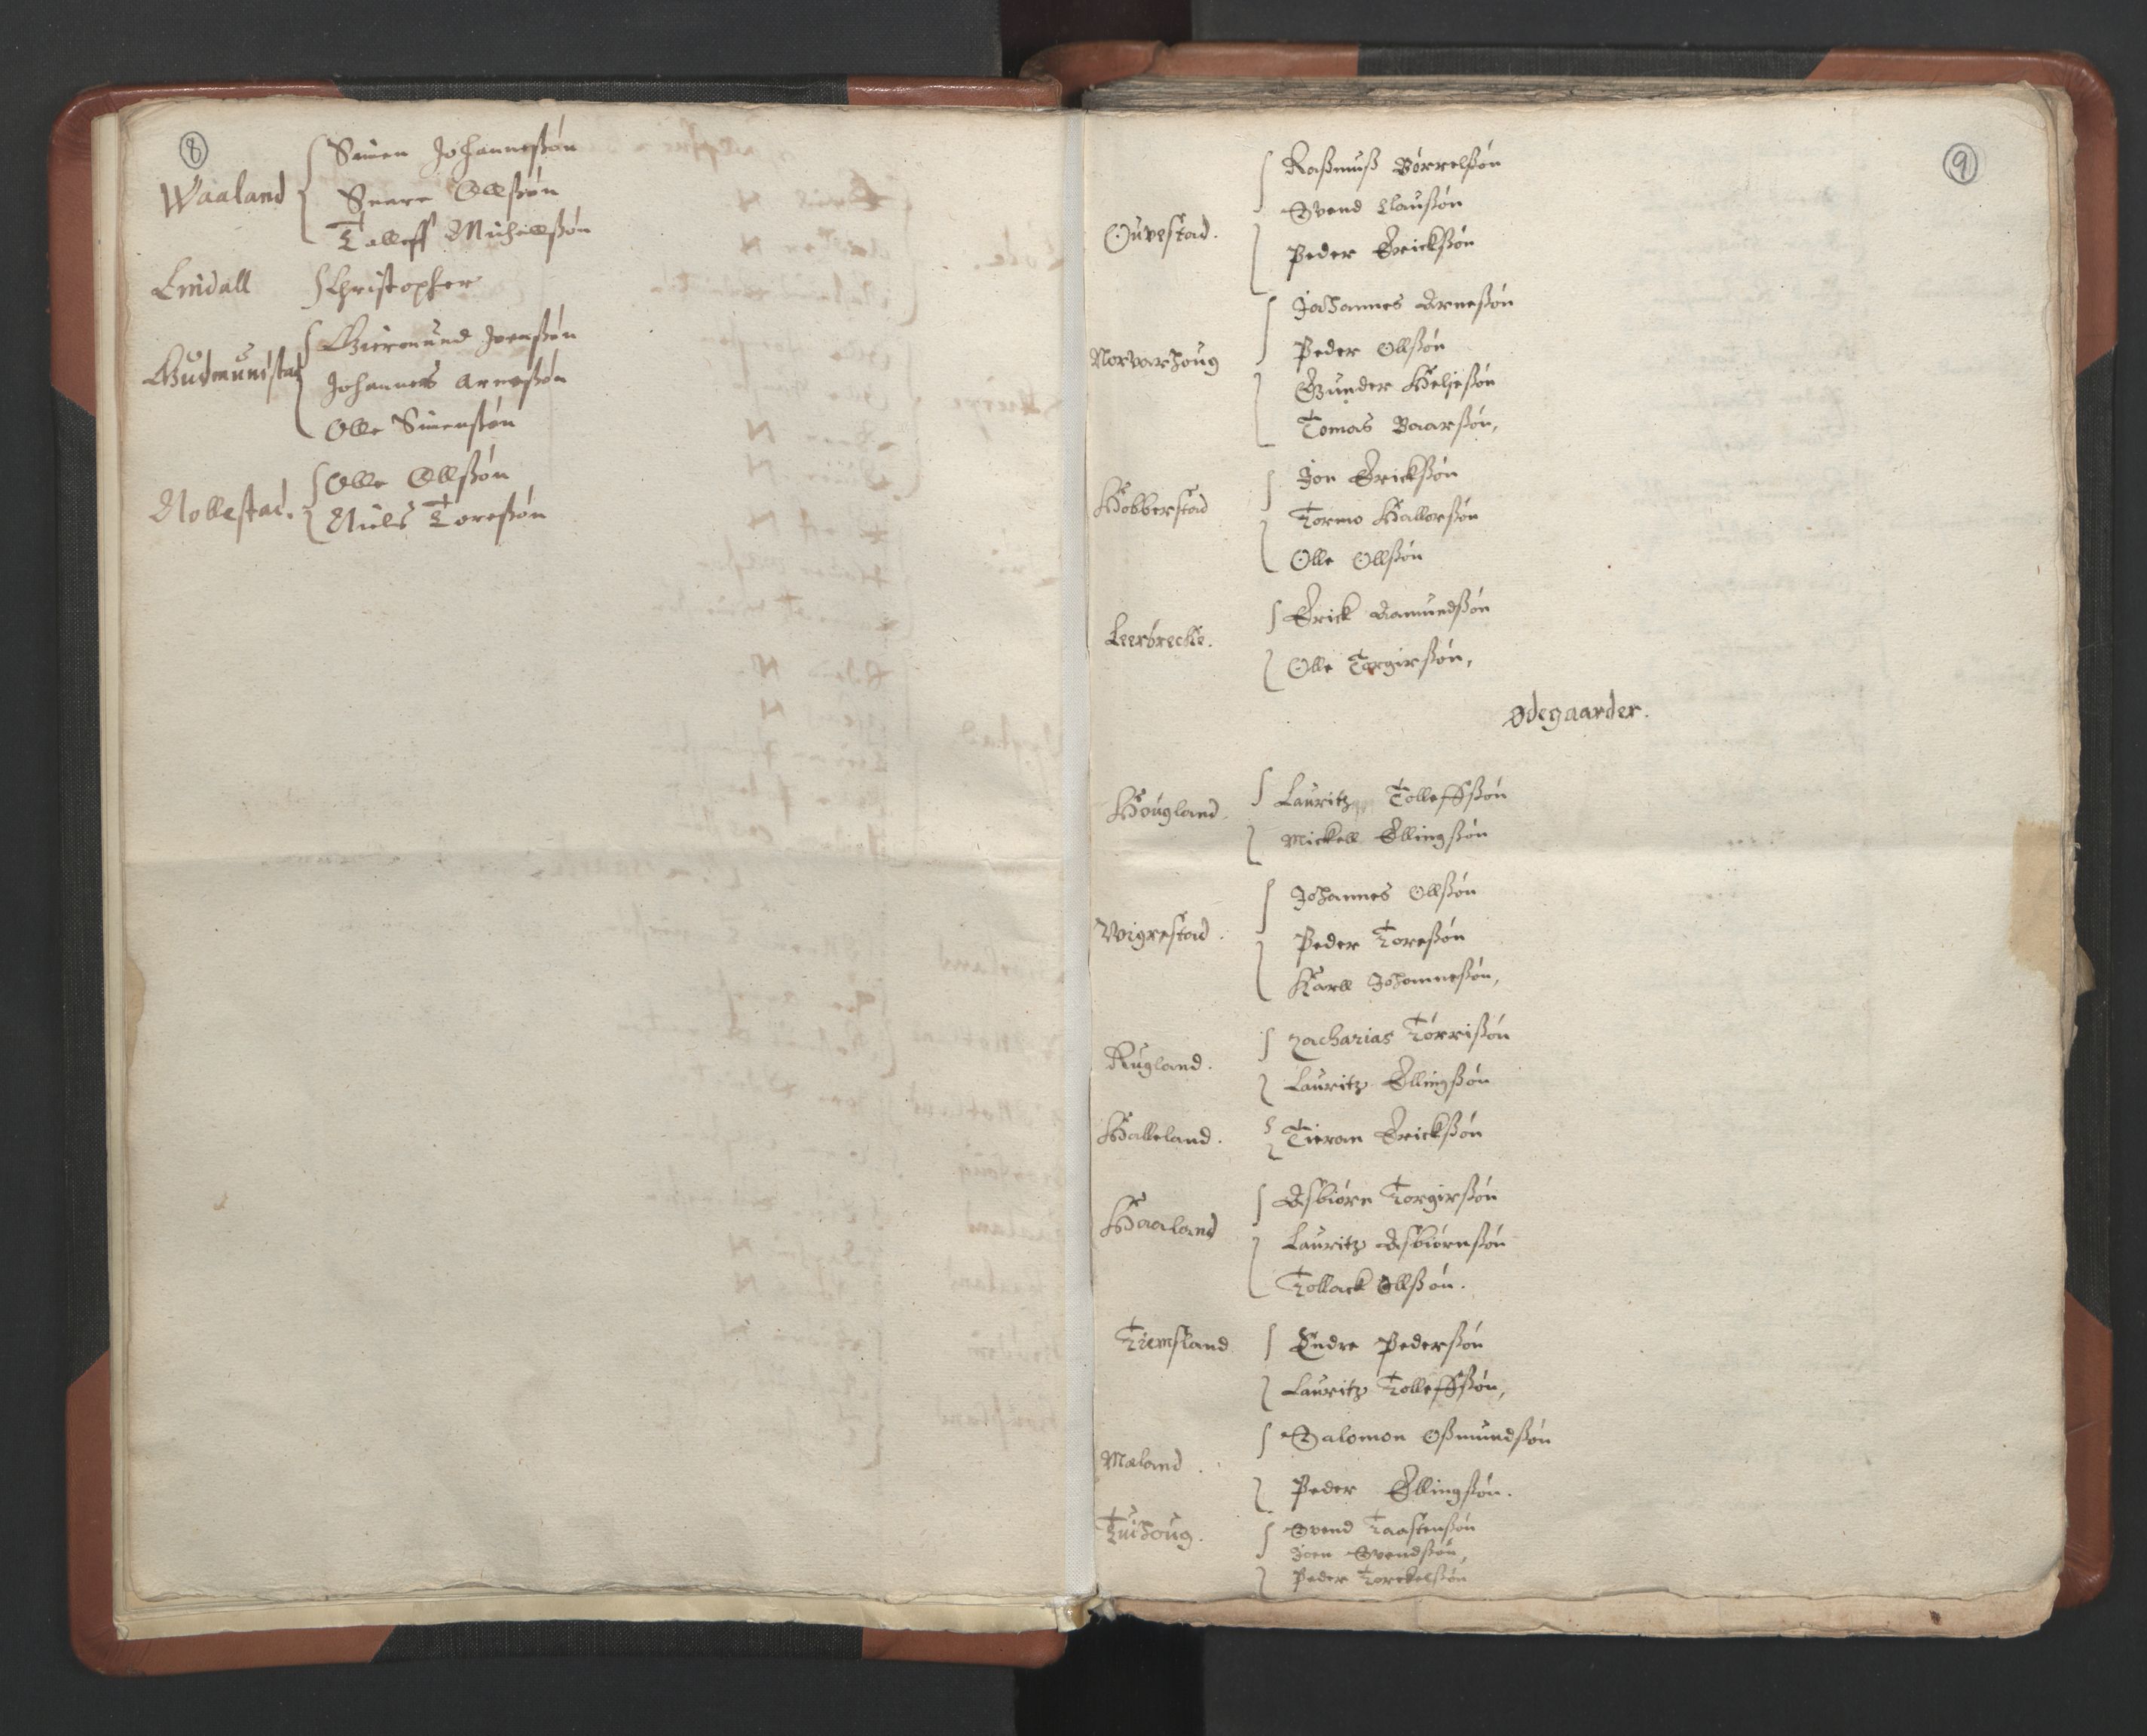 8
Waaland
Simen Johanneßøn
Snare Ollßøn
Talleff Michellßøn
Lindall
Christopher
Gudmunstad
Giermund Joenßøn
Johannes Arneßøn
Olle Simenßøn
Nollestad.
Olle Ollßøn
Niels Toreßøn
9
Ouvestad.
Raßmuß Børrelßøn
Svend Claußøn
Peder Erickßøn
Norvarhoug
Johannes Arneßøn
Peder Ollßøn
Gunder Heljeßøn
Tomas Baarßøn,
Hobberstad
Jon Erickßøn
Tormo Hallorßøn
Olle Ollßøn
Leerbrecke.
Erick Aamundßøn
Olle Torgirßøn,
Ødegaarder.
Hougland.
Lauritz Tolleffßøn
Mickell Ellingßøn
Wigrestad.
Johannes Ollßøn
Peder Toreßøn
Karll Johanneßøn,
Rugland.
Zacharias Tørrißøn
Lauritz Ellingßøn
Halleland.
Tieran Erickßøn
Haaland
Asbiørn Torgirßøn
Lauritz Asbiørnßøn
Tollack Ollßøn.
Tiemsland
Endre Pederßøn
Lauritz Tolleffßøn,
Mæland.
Salomon Oßmundßøn
Peder Ellingßøn.
Tuihoug.
Svend Taastenßøn
Joen Svendßøn,
Peder Torckelßøn